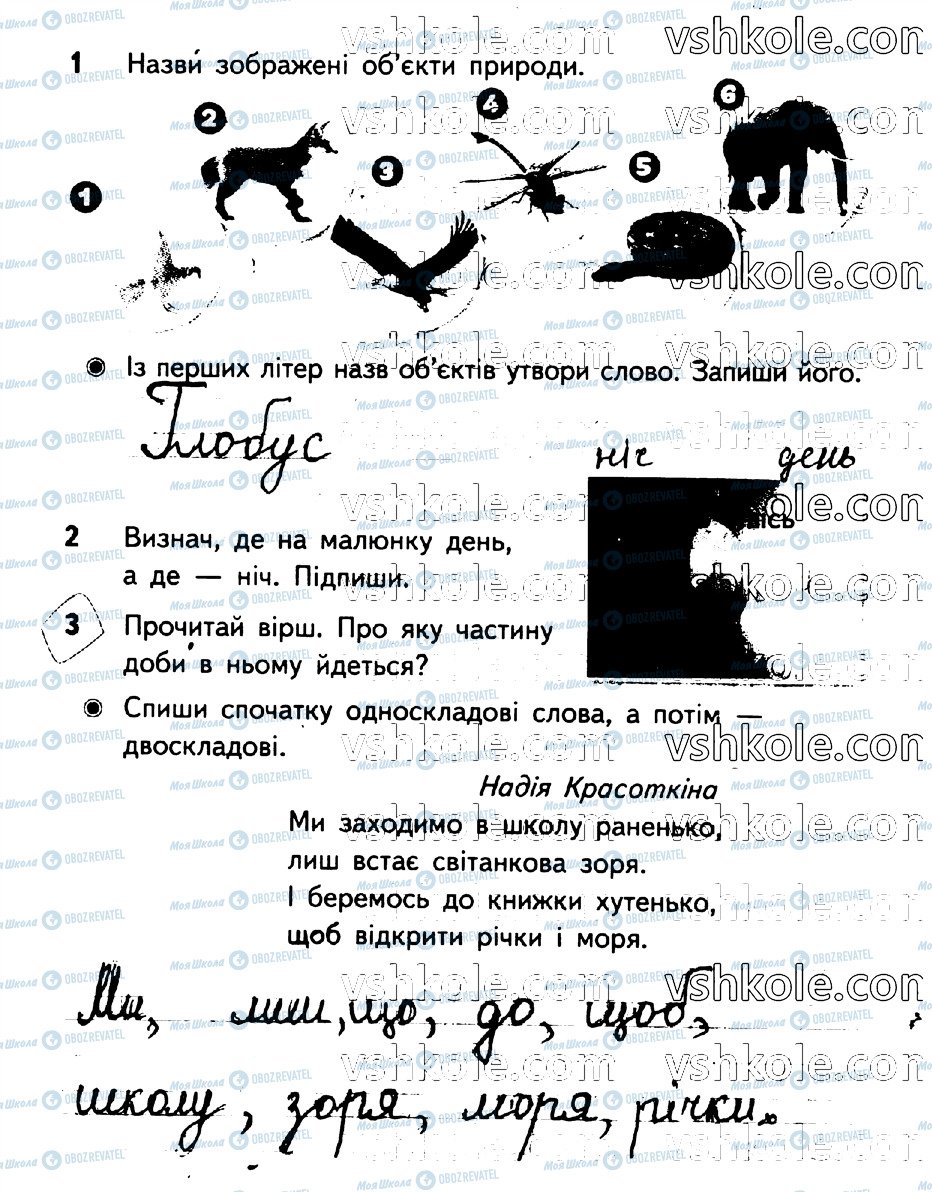 1 Назви́ зображені об'єкти природи.
1 2 3 4 5 6
Із перших літер назв об'єктів утвори слово. Запиши його.
Глобус
ніч день
2 Визнач, де на малюнку день,
а де — ніч. Підпиши.
3 Прочитай вірш. Про яку частину
доби́ в ньому йдеться?
Спиши спочатку односкладові слова, а потім —
двоскладові.
Надія Красоткіна
Ми заходимо в школу раненько,
лиш встає світанкова зоря.
І беремось до книжки хутенько,
щоб відкрити річки і моря.
Ми, лиш, що, до, щоб,
школу, зоря, моря, річки.
vshkole.com
МояШкола OBOZREVATEL